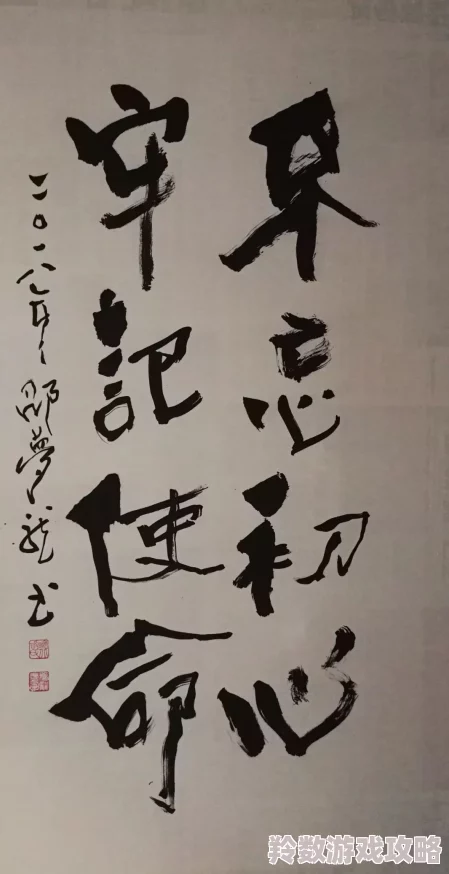 不忘初心
牢记使命
二〇一八年 邵梦龙书
羚数游戏攻略